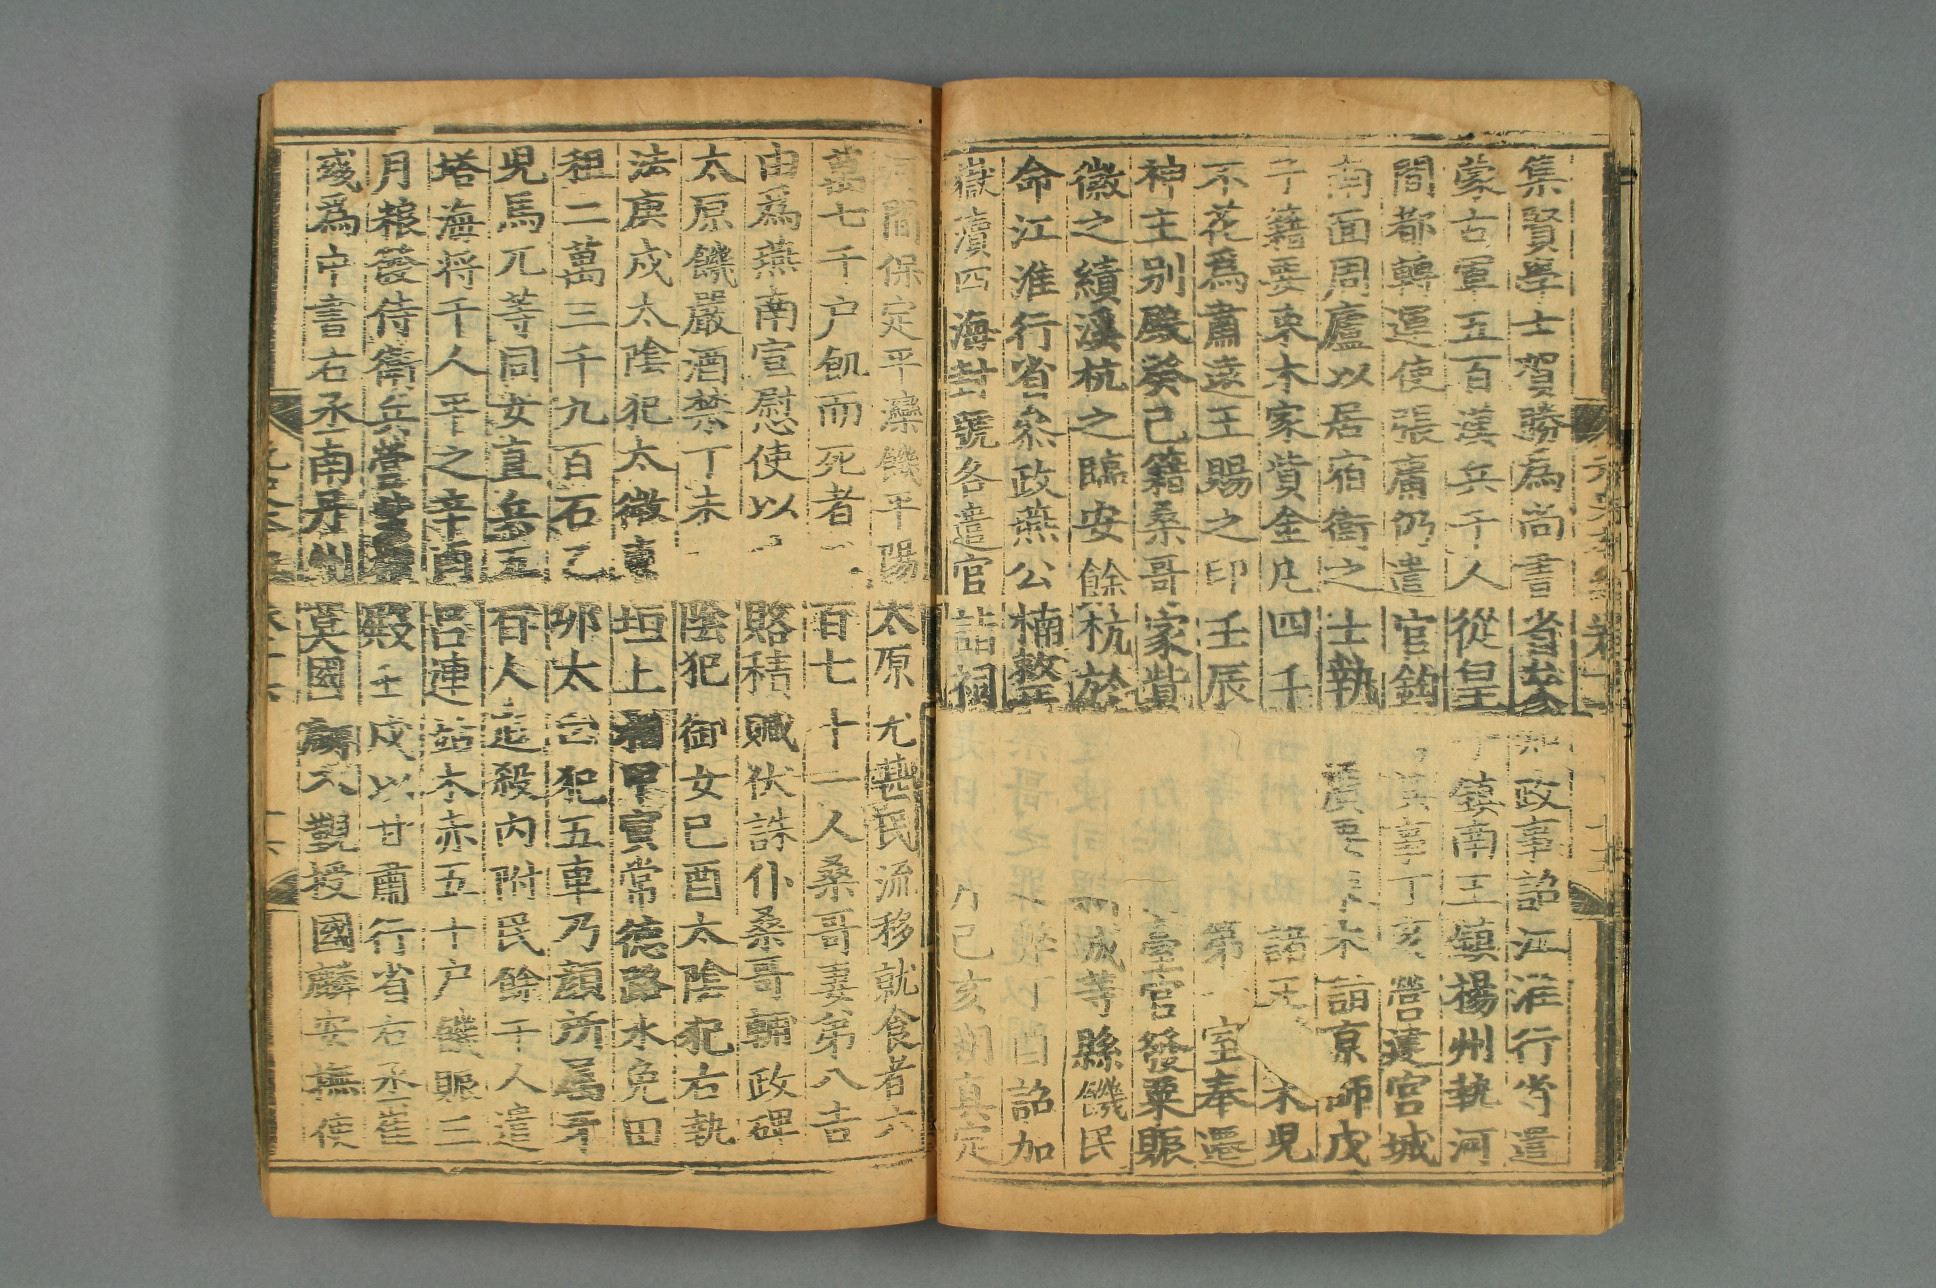 集賢學士賀勝爲尚書省叅知政事詔江淮行省遣
蒙古軍五百漢兵千人從皇子鎭南王鎭揚州執河
間都轉運使張庸仍遣官鈎其事丁亥營建宮城
南面周廬以居宿衛之士執 婁 木 詣京師戊
子籍要束木家貲金凡四千 詣天 木兒
不花爲肅遠王賜之印壬辰 第 室奉遷
神主別殿癸巳籍桑哥家貲 臺官發粟賑
徽之績溪杭之臨安餘杭於 城等縣饑民
命江淮行省叅政燕公楠整 桑哥之罪 詔加
嶽瀆四海封號各遣官詣祠 月己亥朔眞定
河間保定平灤饑平陽太原尤甚民流移就食者六
萬七千戶飢而死者 百七十一人桑哥妻弟八吉
由爲燕南宣慰使以賂積贓伏誅仆桑哥輔政碑
太原饑嚴酒禁丁未 陰犯御女己酉太陰犯右執
法庚戌太陰犯太微東垣上相甲寅常德路水免田
租二萬三千九百石乙卯太白犯五車乃顔所屬牙
兒馬兀等同女直兵五百人追殺內附民餘千人遣
塔海將千人平之辛酉呂連站木赤五十戶饑賑三
月粮發侍衛兵營 殿壬戌以甘肅行省右丞崔
彧爲中書右丞南丹州莫國麟入覲授國麟安撫使